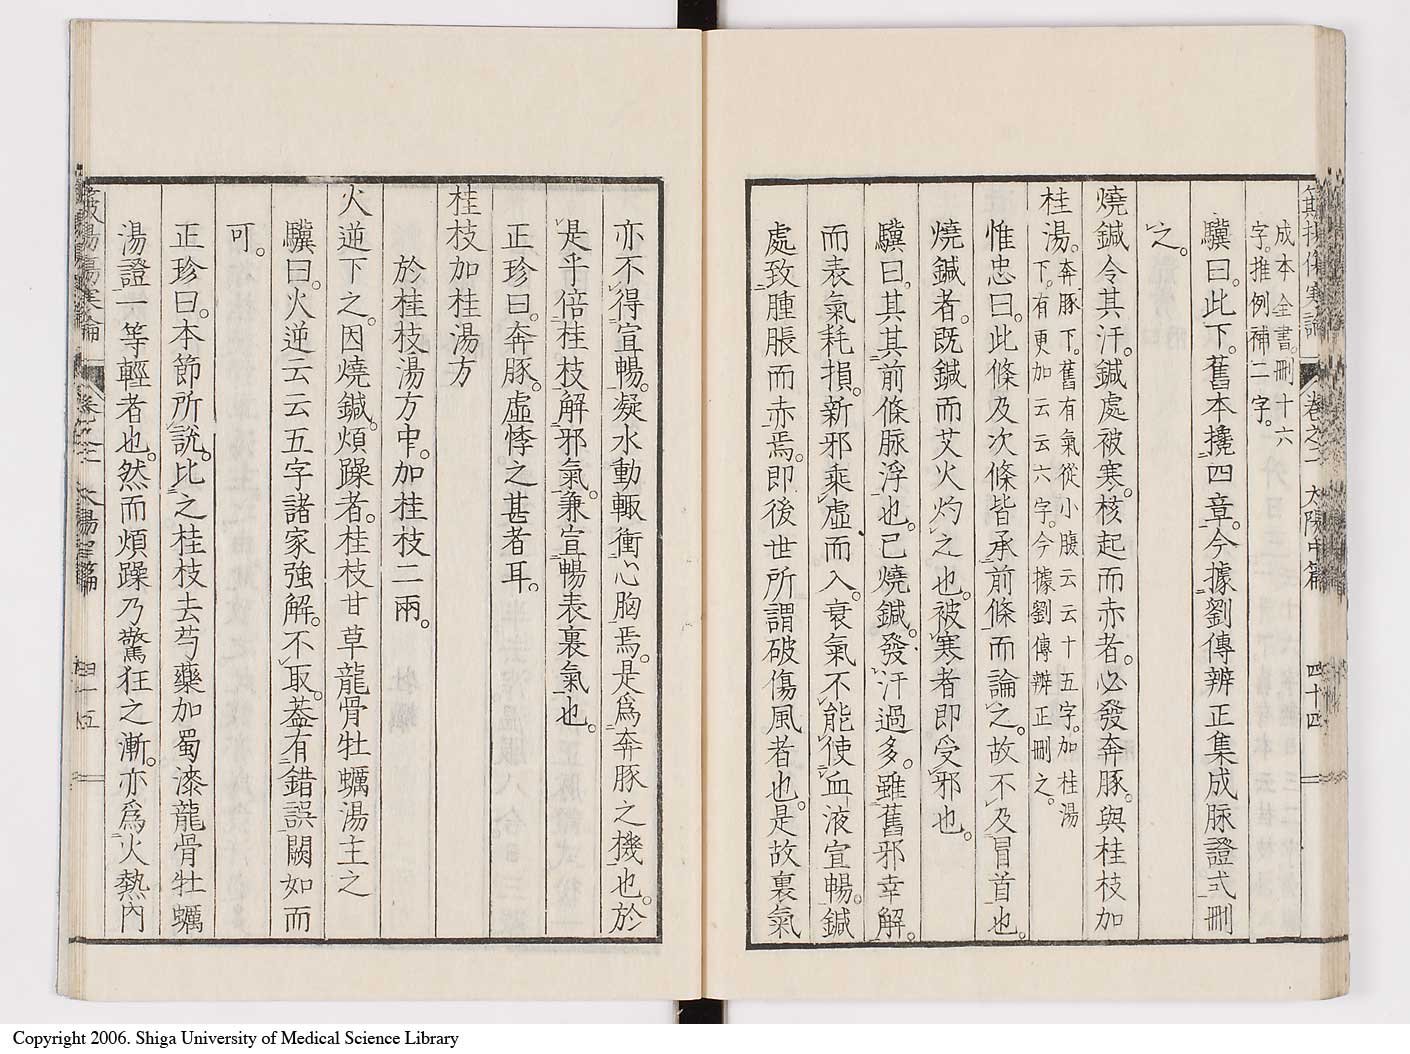 成本全書。刪十六
字。推例補二字。
驥曰。此下。舊本攙四章。今據劉傳辨正集成脈證式刪
之。
燒鍼令其汗。鍼處被寒。核起而赤者。必發奔豚。與桂枝加
桂湯。奔豚下。舊有氣從小腹云云十五字。加桂湯
下。有更加云云六字。今據劉傳辨正刪之。
惟忠曰。此條及次條皆承前條而論之。故不及冒首也。
燒鍼者。既鍼而艾火灼之也。被寒者即受邪也。
驥曰。其其前條脈浮也。已燒鍼。發汗過多。雖舊邪幸解。
而表氣耗損。新邪乘虛而入。衰氣不能使血液宣暢。鍼
處致腫脹而赤焉。即後世所謂破傷風者也。是故裏氣
卷之二 太陽中篇 四十四
亦不得宣暢。凝水動輒衝心胸焉。是爲奔豚之機也。於
是乎倍桂枝解邪氣。兼宣暢表裏氣也。
正珍曰。奔豚。虛悸之甚者耳。
桂枝加桂湯方
於桂枝湯方中。加桂枝二兩。
火逆下之。因燒鍼。煩躁者。桂枝甘草龍骨牡蠣湯主之
驥曰。火逆云云五字諸家強解。不取。蓋有錯誤闕如而
可。
正珍曰。本節所說。比之桂枝去芍藥加蜀漆龍骨牡蠣
湯證一等輕者也。然而煩躁乃驚狂之漸。亦爲火熱內
Copyright 2006. Shiga University of Medical Science Library